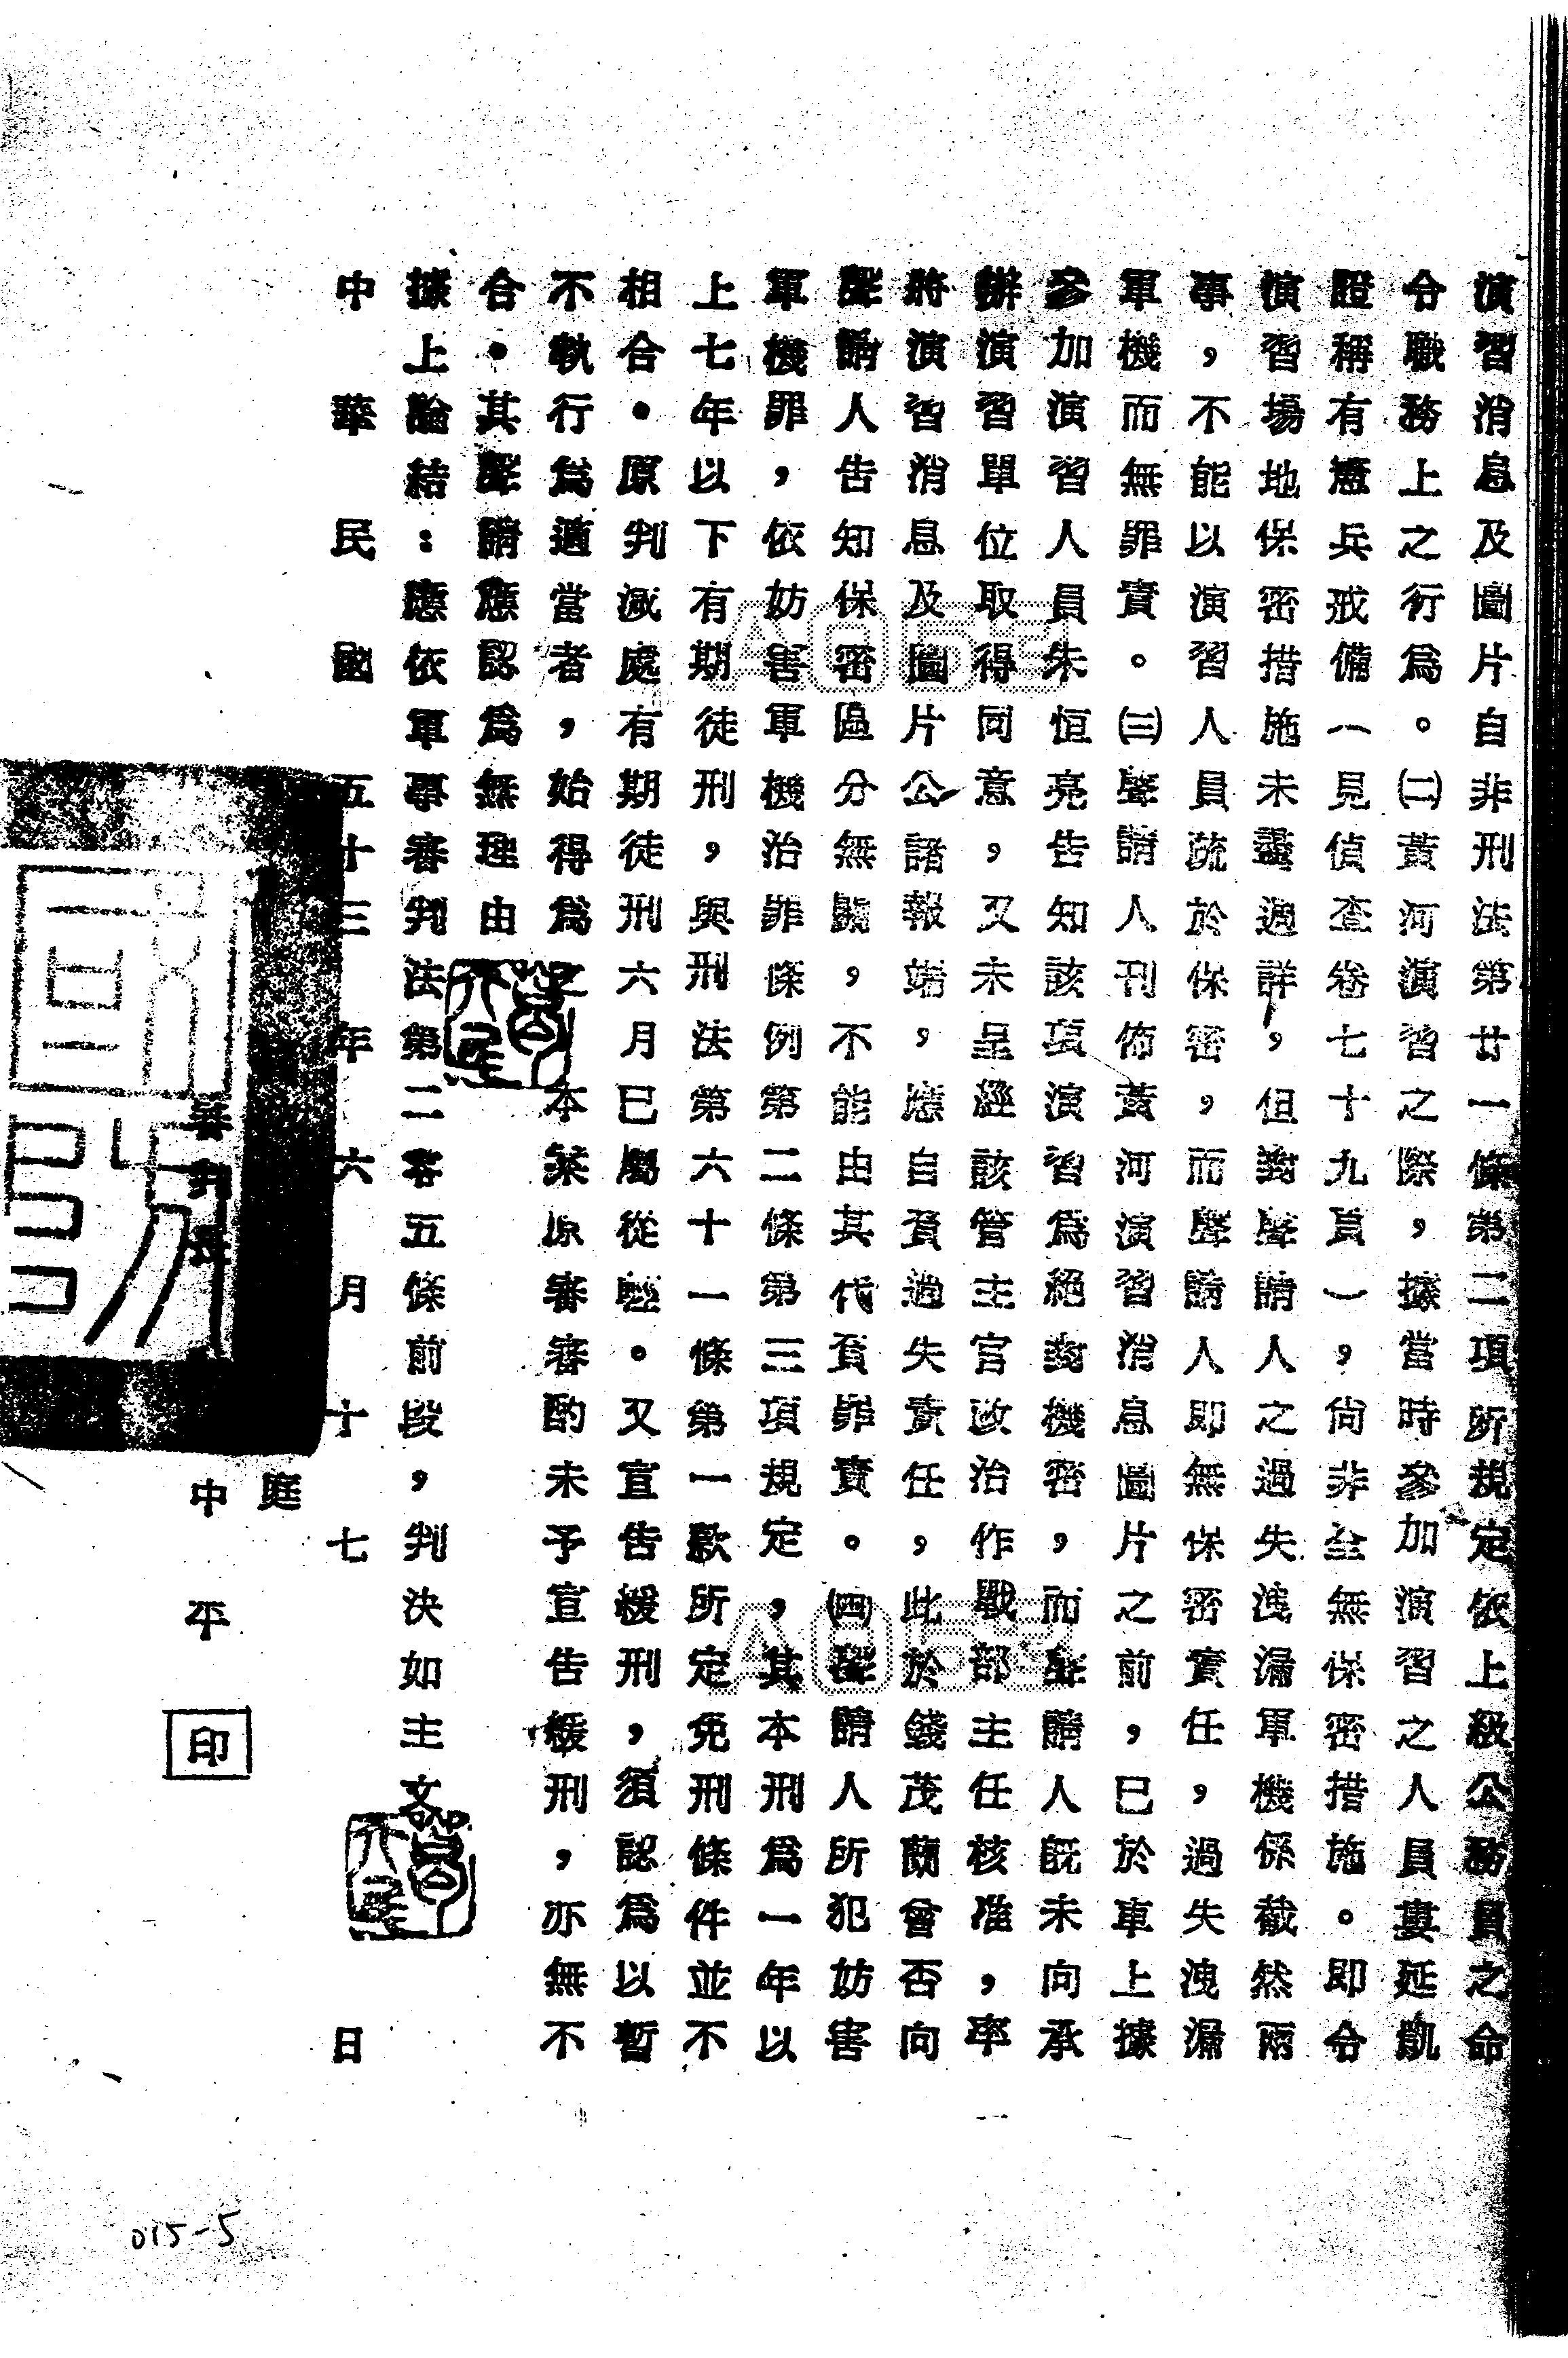 演習消息及圖片自非刑法第廿一條第二項所規定依上級公務員之命
令職務上之行為。㈡黃河演習之際,據當時參加演習之人員婁延凱
證稱有憲兵戒備(見偵查卷七十九頁),尚非全無保密措施。即令
演習場地保密措施未盡週詳,但對聲請人之過失洩漏軍機,係截然兩
事,不能以演習人員疏於保密,而聲請人即無保密實任,過失洩漏
軍機,而無罪責。㈢聲請人刊佈黃河演習消息圖片之前,已於車上據
參加演習人員朱恒亮告知該項演習為絕對機密,而聲請人既未向承
辦演習單位取得同意,又未呈經該管主官政治作戰部主任核准,率
將演習消息及圖片公諸報端,應自負過失責任,此於錢茂蘭曾否向
聲請人告知保密區分無關,不能由其代負罪責。㈣聲請人所犯妨害
軍機罪,依妨害軍機治罪條例第二條第三項規定,其本刑為一年以
上七年以下有期徒刑,與刑法第六十一條第一款所定免刑條件並不
相合。原判減處有期徒刑六月已屬從輕。又宣告緩刑,須認為以暫
不執行為適當者,始得為之本案原審審酌未予宣告緩刑,亦無不
合。其聲請應認為無理由
據上論結:應依軍事審判法第二零五條前段,判決如主文
中華民國五十三年六月十七日
庭
審判長 中 平 印
015-5
A053
A053